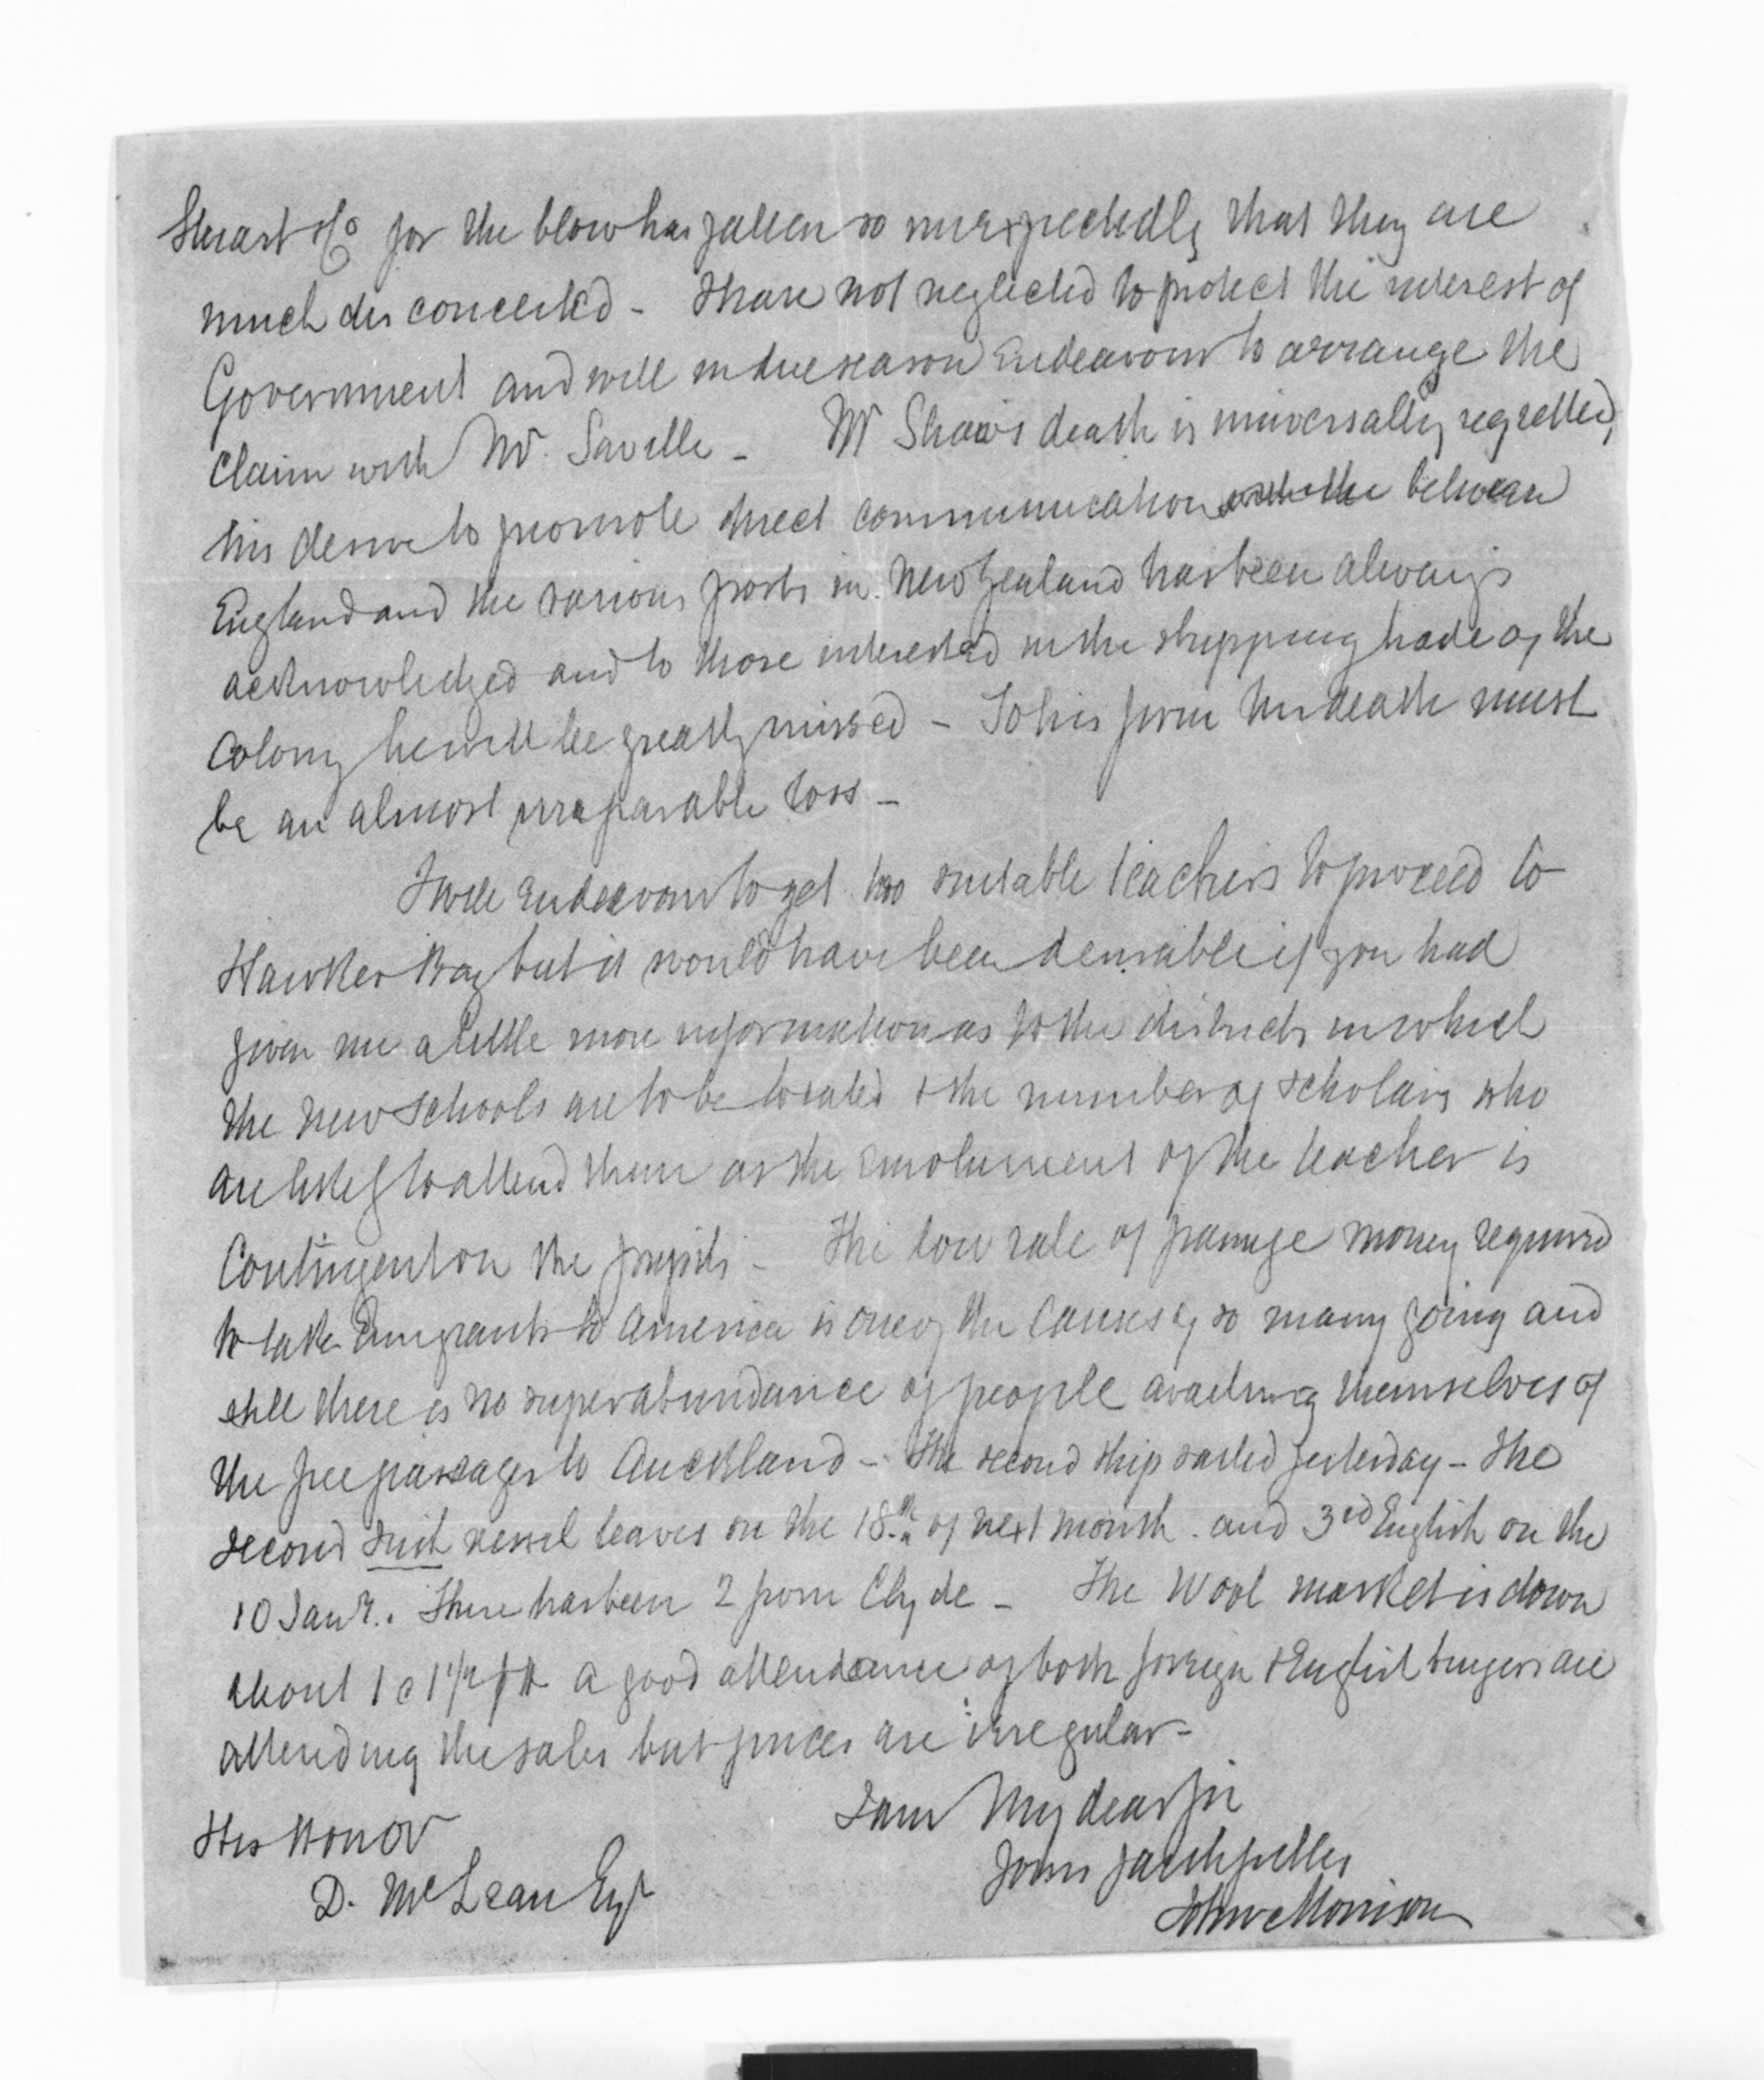 Stuart & Co for the blow has fallen so unexpectedly that they are
much disconcerted - I have not neglected to protect the interest of
Government and will in due season Endeavour to arrange the
Claim with Mr. Saville - Mr Shaw's death is universally regretted,
his desire to promote direct communication with the between
England and the various ports in New Zealand has been always
acknowledged and to those interested in the shipping trade of the
Colony he will be greatly missed - To his firm his death must
be an almost irreparable loss -
I will Endeavour to get two suitable teachers to proceed to
Hawkes Bay but it would have been desirable if you had
given me a little more information as to the districts in which
the New Schools are to be located & the number of scholars who
are likely to attend them as the emolument of the teacher is
Contingent on the pupils - The low rate of passage money required
to take Emigrants to America is one of the Causes of so many going and
still there is no superabundance of people availing themselves of
the free passages to Auckland - The second ship sailed yesterday - The
second Irish vessel leaves on the 18th of next month. and 3rd English on the
10 Jany. There has been 2 from Clyde - The Wool market is down
about 1 @ 1 1/2 a good attendance of both foreign & English buyers are
attending the sales but prices are irregular -
I am My dear Sir
His Honor
Yours faithfully
D. McLean Esqr
John Morrison